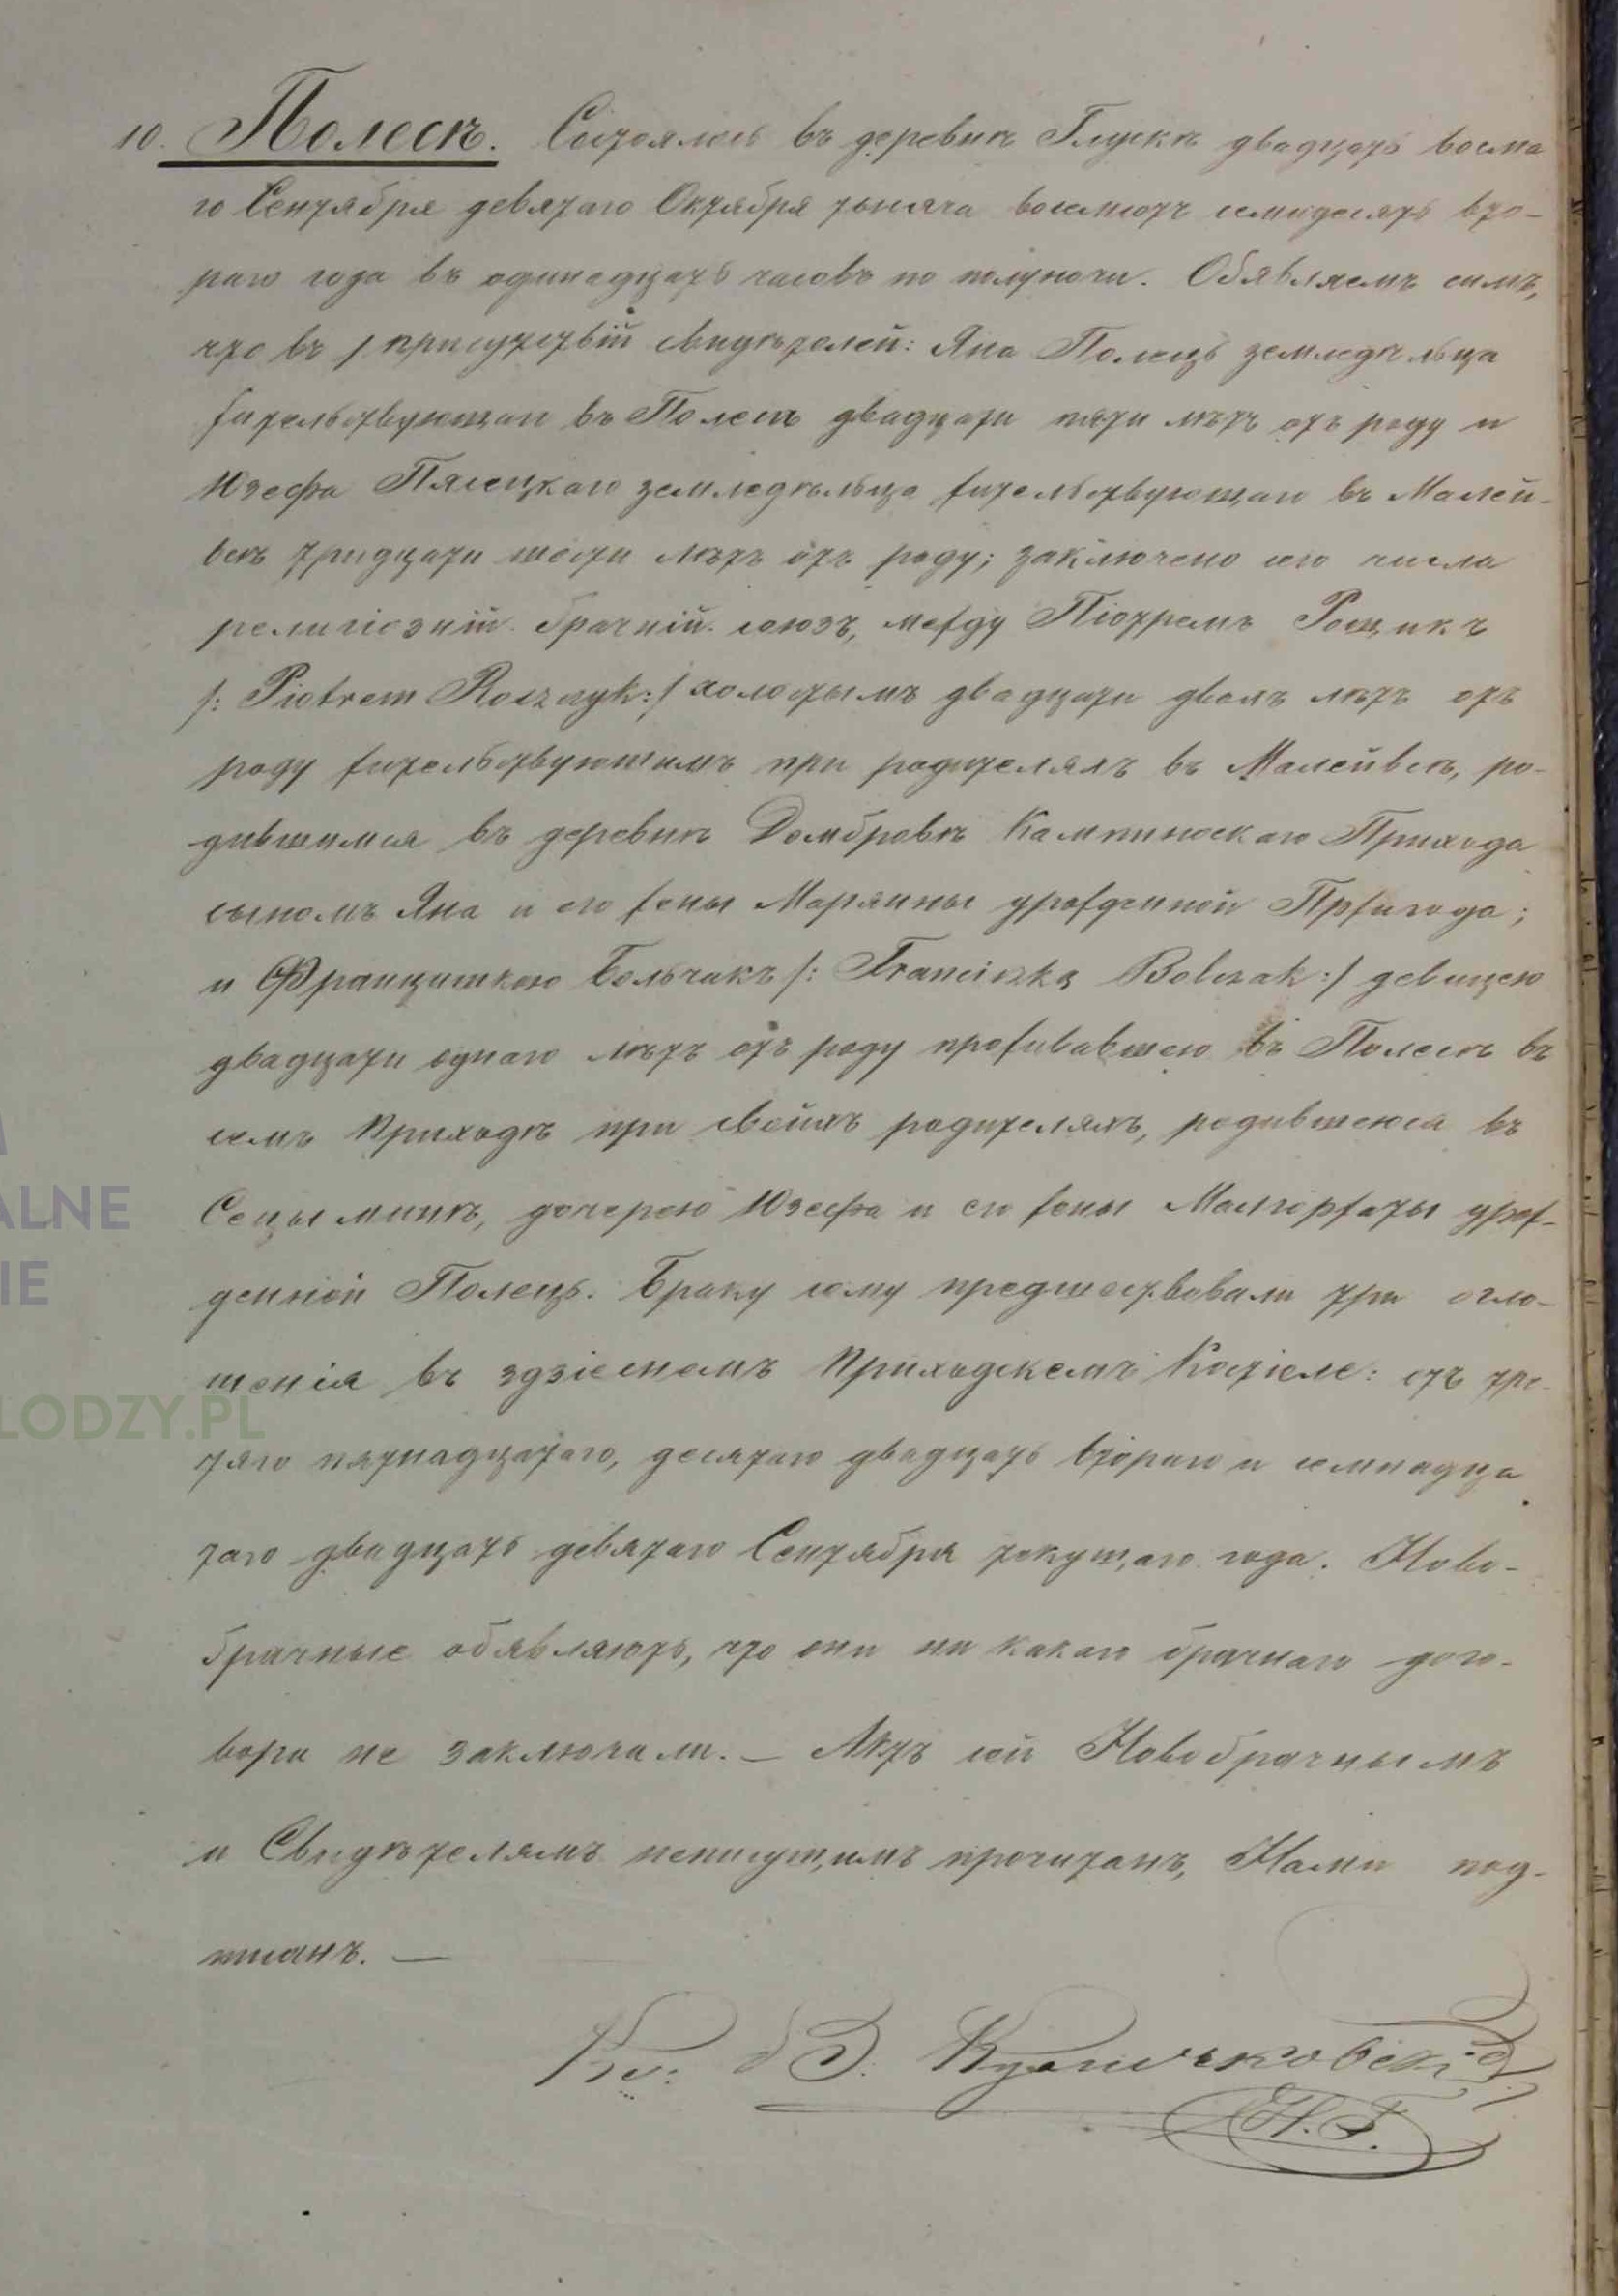 10. Полескъ. Состоялось въ деревнѣ Глускѣ двадцать восма
го Сентября девятаго Октября тысяча восемсотъ семидесятъ вто-
раго года въ одинадцать часовъ по полуночи. Обявляемъ симъ,
что въ присутствій свидѣтолей: Яна Полець земледѣльца
жительствующаго въ двадцати пяти лѣтъ отъ роду и
Юзефа Пясецкаго земледѣльца жительствующаго въ Малей-
всѣ тридцати шести лѣтъ отъ роду; заключено сего числа
религіозній брачній союзъ, между Піотремъ Рощикъ
/: Piotrem Roszczyk :/ холостымъ двадцати двохъ лѣтъ отъ
роду жительствующимъ при родителяхъ въ Малейвсѣ, ро-
дившимся въ деревнѣ Домбровѣ Кампиноскаго Прихода
сыномъ Яна и его жены Марянны урожденной Пржигода;
и Францишкою Больчакъ /: Franciszką Bolczak :/ девицею
двадцати однаго лѣтъ отъ роду проживавшею въ Полескѣ въ
семъ Приходѣ при свойхъ родителяхъ, родившеюся въ
Сецыминѣ, дочерею Юзефа и его жены Малгоржаты урож-
денной Полець. Браку сому предшествовали три огло-
шенія въ здзіесномъ Приходскемъ Костіеле: отъ тре-
тяго пятнадцатаго, десятаго двадцать втораго и семнадца
таго двадцать девятаго Сентября текущаго года. Ново-
брачные обявляютъ, что они ни какаго брачнаго дого-
вора не заключали. — Актъ сей Новобрачнымъ
и Свидѣтелямъ неписущимъ прочитанъ, Нами под-
писанъ. —
Кс:
Н. Г.
ALNE
IE
LODZY.PL